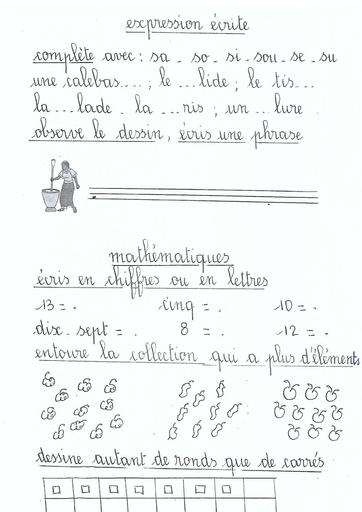 expression écrite
complète avec : sa - so - si - sou - se - su
une calebas.... ; le ...lide ; le tis...
la ...lade - la ...ris ; un ...lure
observe le dessin, écris une phrase
mathématiques
écris en chiffres ou en lettres
13 = . cinq = . 10 = .
dix-sept = . 8 = . 12 = .
entoure la collection qui a plus d'éléments
dessine autant de ronds que de carrés